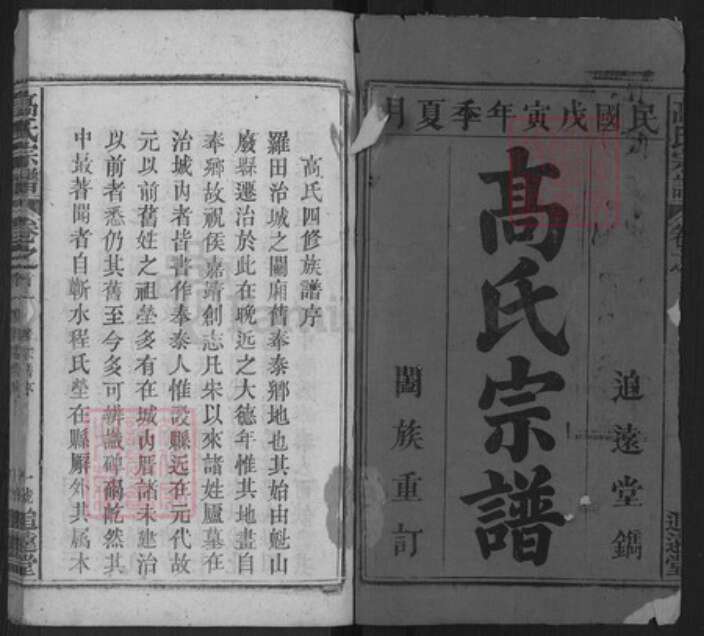 民國戊寅年季夏月
高氏宗譜
追遠堂鐫
闔族重訂
高氏四修族譜序
羅田治城之關廂舊奉泰鄉地也其始由魁山
廢縣遷治於此在晚近之大德年惟其地盡自
奉鄉故祝侯嘉靖創志凡宋以來諸姓廬墓在
治城內者皆書作奉泰人惟設縣近在元代故
元以前舊姓之祖塋多有在城內厝諸未建治
以前者悉仍其舊至今多可辨識碑碣屹然其
中最著聞者自蘄水程氏塋在縣廨外其為木
高氏宗譜
卷之首
追遠堂